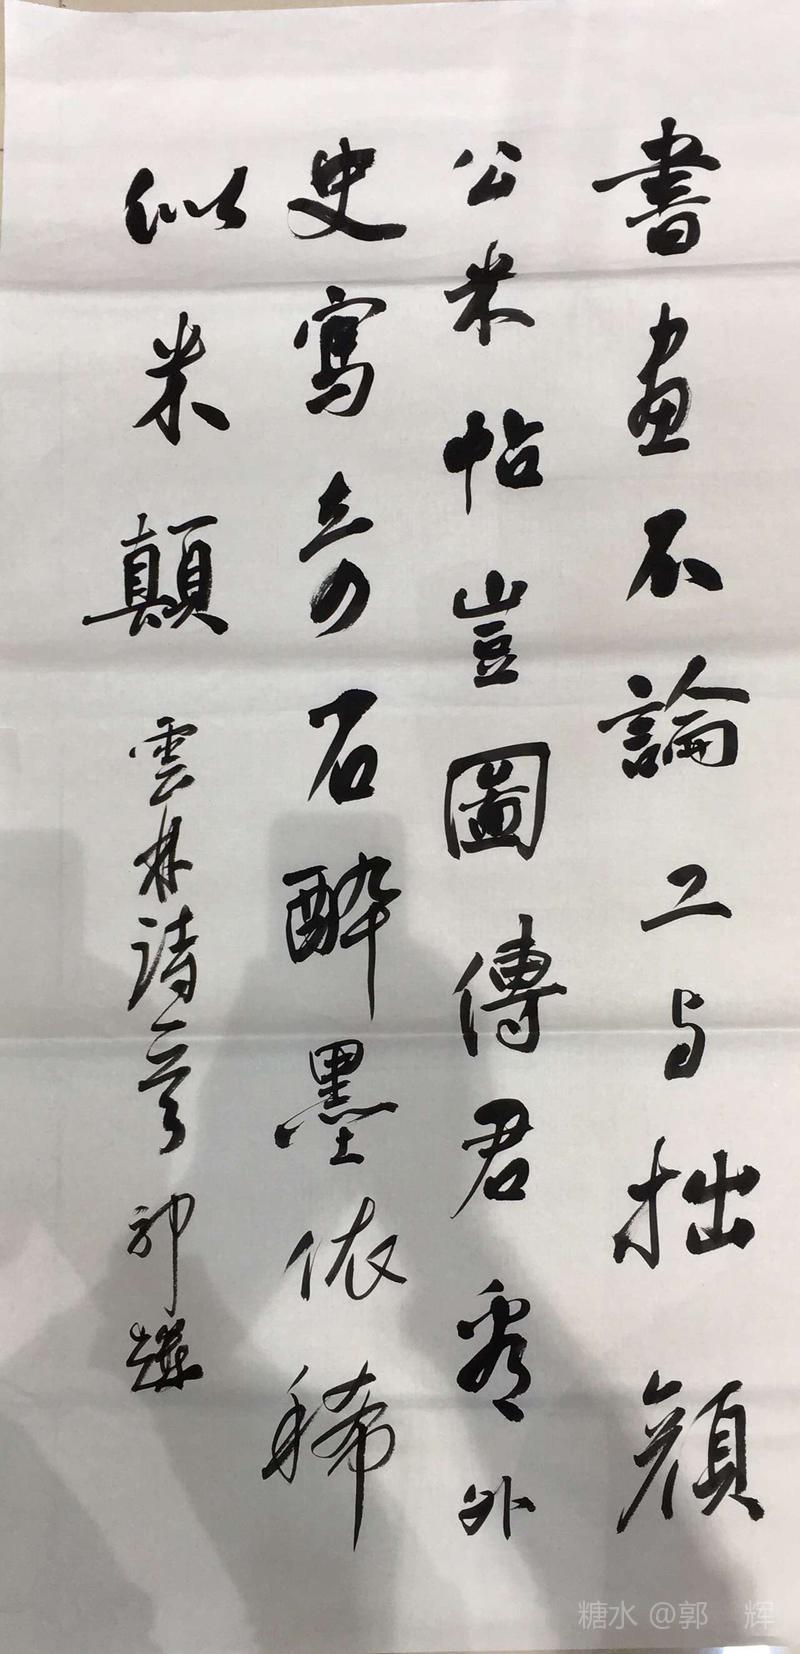 書畫不論工与拙顔
公米帖豈圖傳君看外
史寫奇石醉墨依稀
似米顛
雲林詩一首 郭輝
糖水 @郭 辉